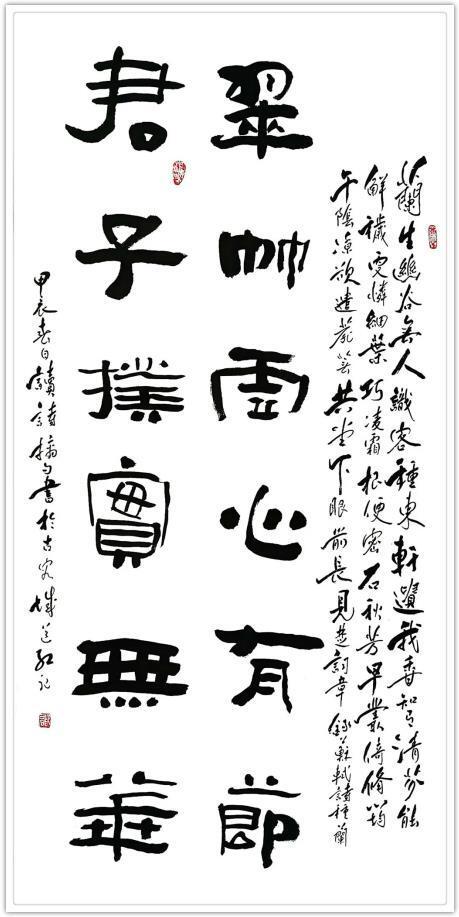 蘭生幽谷無人識客種東軒遺我香知有清芬能
解穢更憐細葉巧凌霜根便密石秋芳早叢倚修筠
午陰涼欲遣蘼蕪共堂下眼前長見楚詞章錄蘇軾詩種蘭
翠竹虛心有節
君子樸實無華
甲辰春日讀詩摘句書於古宛城紅記